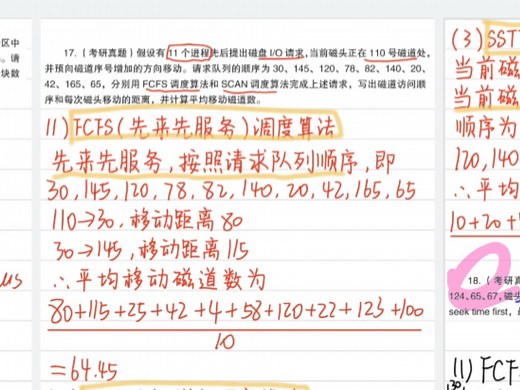 区中
。请
块数
17.（考研真题）假设有11个进程先后提出磁盘I/O请求，当前磁头正在110号磁道处，
并预向磁道序号增加的方向移动。请求队列的顺序为30、145、120、78、82、140、20、
42、165、65，分别用FCFS调度算法和SCAN调度算法完成上述请求，写出磁道访问顺
序和每次磁头移动的距离，并计算平均移动磁道数。
(1) FCFS(先来先服务)调度算法
先来先服务，按照请求队列顺序，即
30,145,120,78,82,140,20,42,165,65
110→30,移动距离80
30→145,移动距离115
∴平均移动磁道数为
80+115+25+42+4+58+120+22+123+100
10
=64.45
(3) SST
当前磁
当前磁
顺序为
120,140
∴平均
10+20+
18.（考研
124、65、67，磁头
seek time first，
(1) FCF